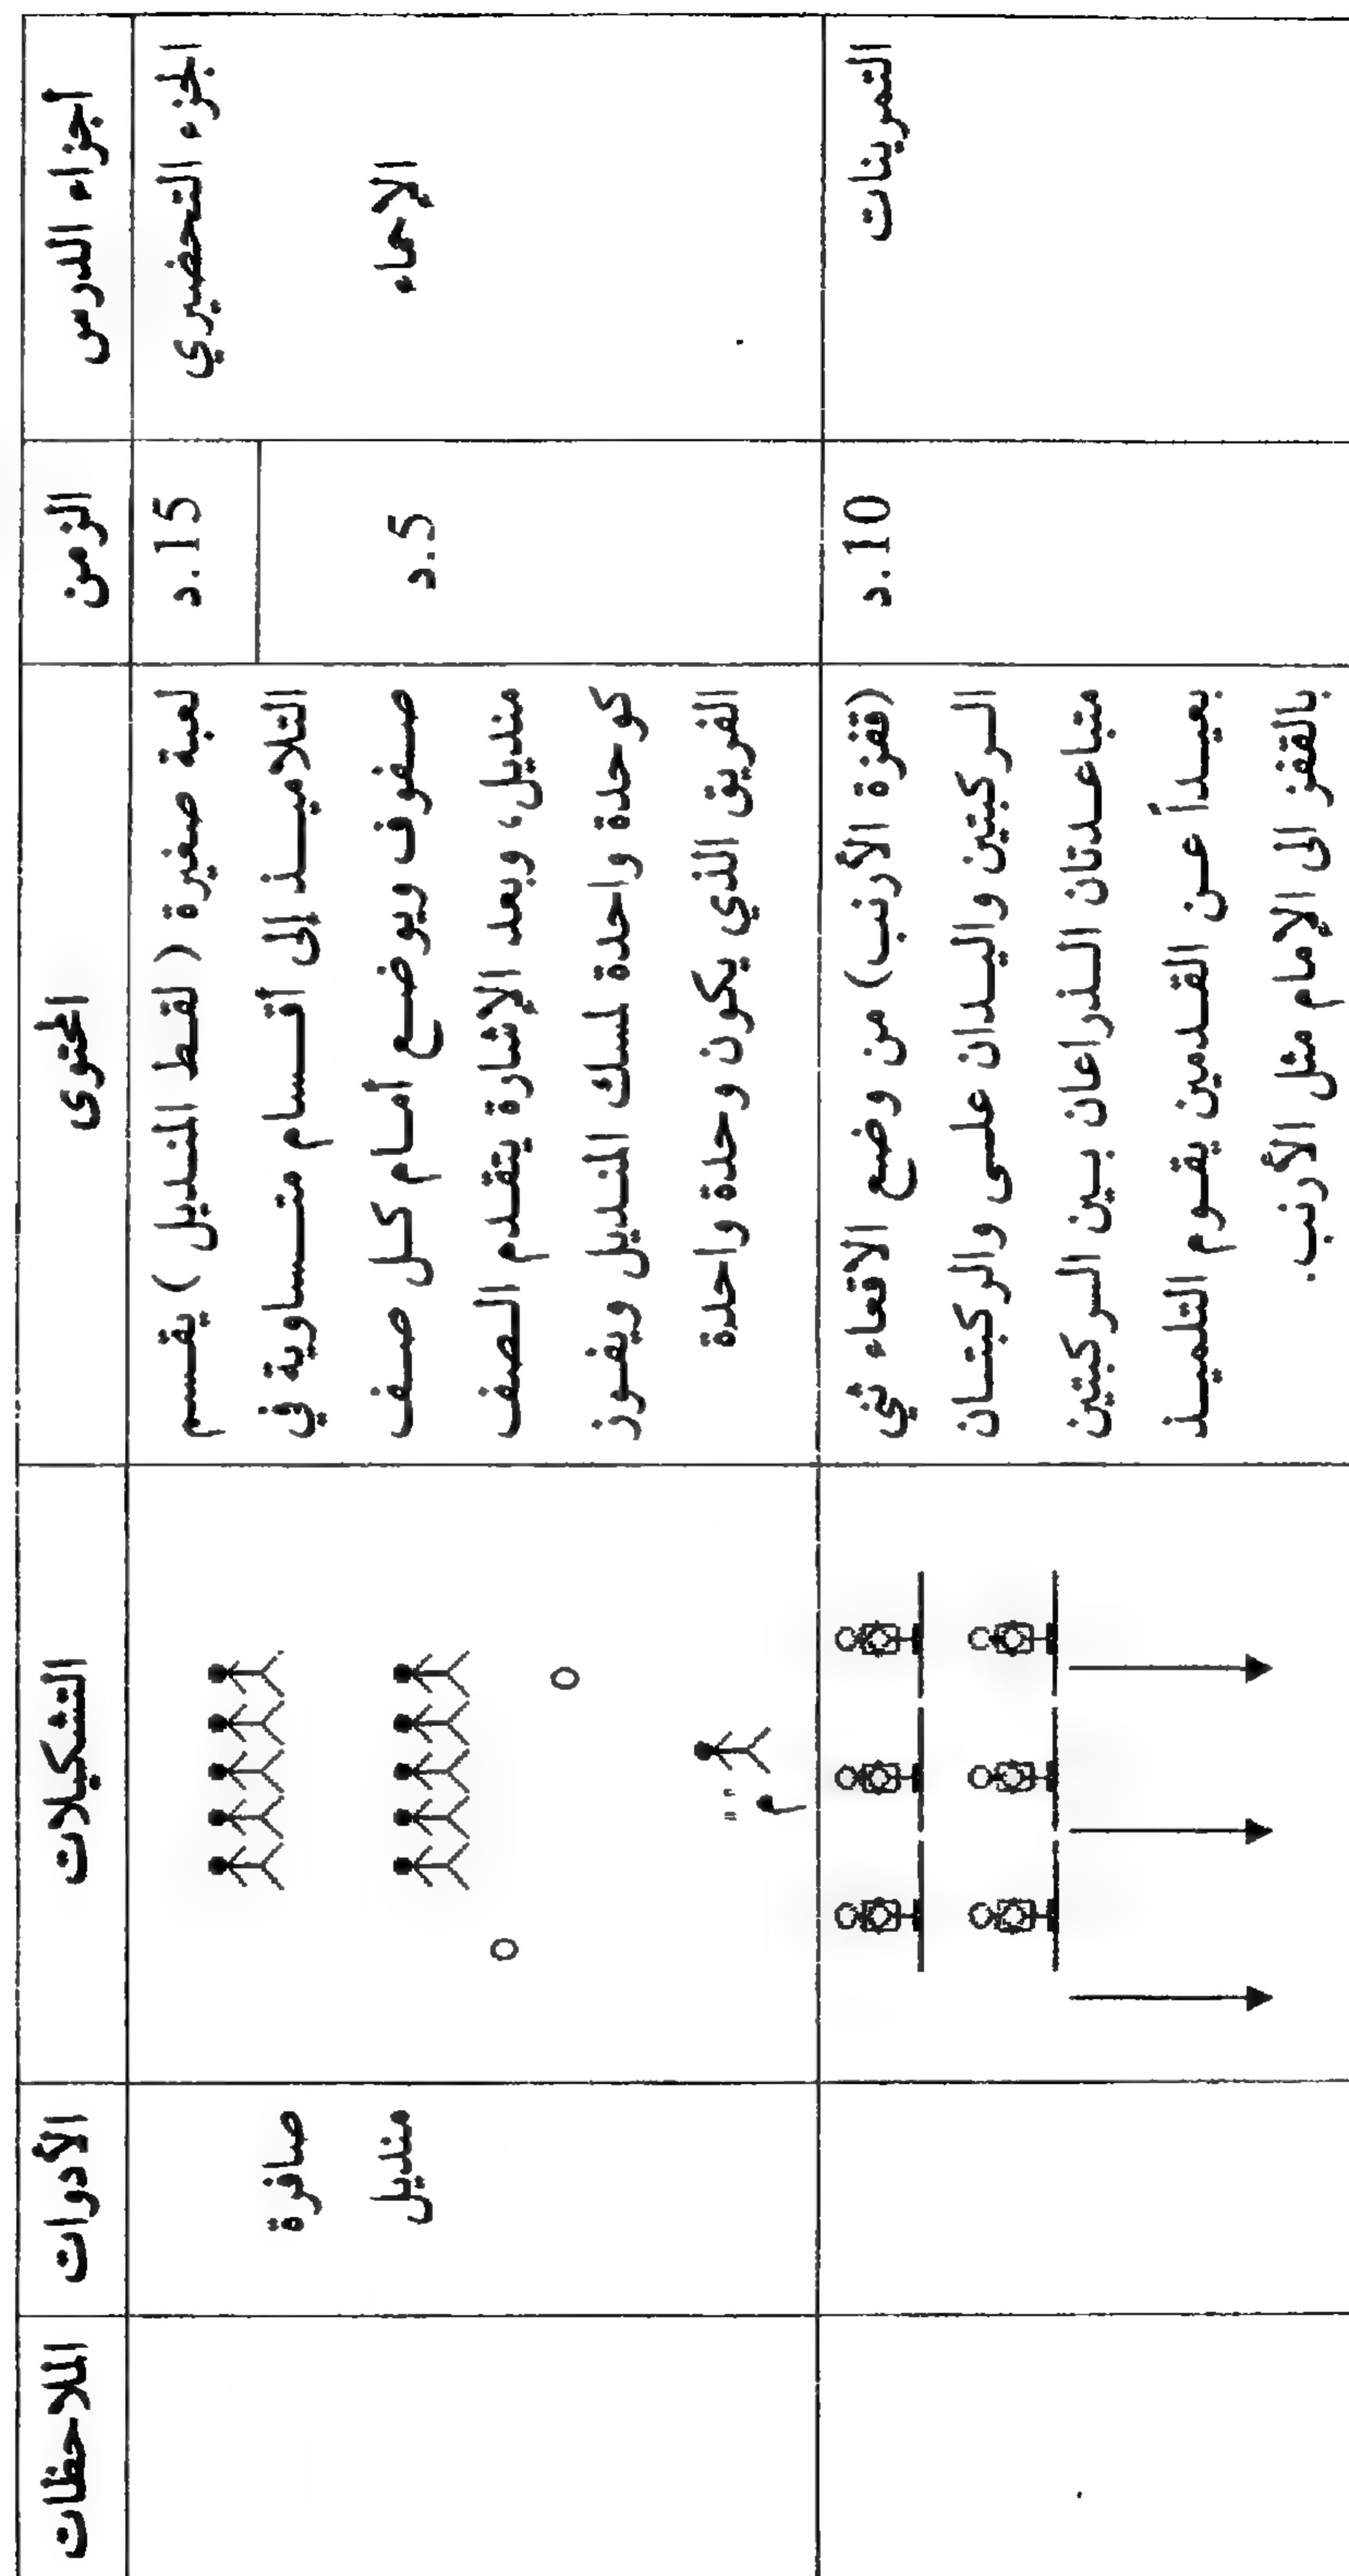 أجزاء الدرس
الزمن
المحتوى
التشكيلات
الأدوات
الملاحظات
الجزء التحضيري
الإحماء
15.د
5.د
لعبة صغيرة ( لقط المنديل ) يقسم
التلاميذ إلى أقسام متساوية في
صفوف ويوضع أمام كل صف
منديل، وبعد الإشارة يتقدم الصف
كوحدة واحدة لمسك المنديل ويفوز
الفريق الذي يكون وحدة واحدة
م
صافرة
منديل
التمرينات
10.د
(قفزة الأرنب) من وضع الاقعاء ثني
الركبتين واليدان على والركبتان
متباعدتان الذراعان بين الركبتين
بعيداً عن القدمين يقوم التلميذ
بالقفز الى الإمام مثل الأرنب.